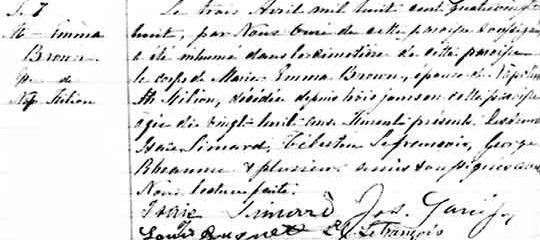 S. 7
M - Emma
Brown
ép. de
Nap Hilion
Le trois Avril mil huit cent quatrevingt
huit, par Nous Curé de cette paroisse soussigné
a été inhumé dans le cimetière de cette paroisse
le corps de Marie Emma Brown, épouse de Napoléon
Hilion, décédée depuis trois jours en cette paroisse
agée de vingt huit ans. Etaient présents Messieurs
Isaïe Simard, Célestin Lefrancois, George
Rheaume & plusieurs soussignés avec
Nous lecture faite.
Isaie Simard Jos.
Louis L. Lefrançois